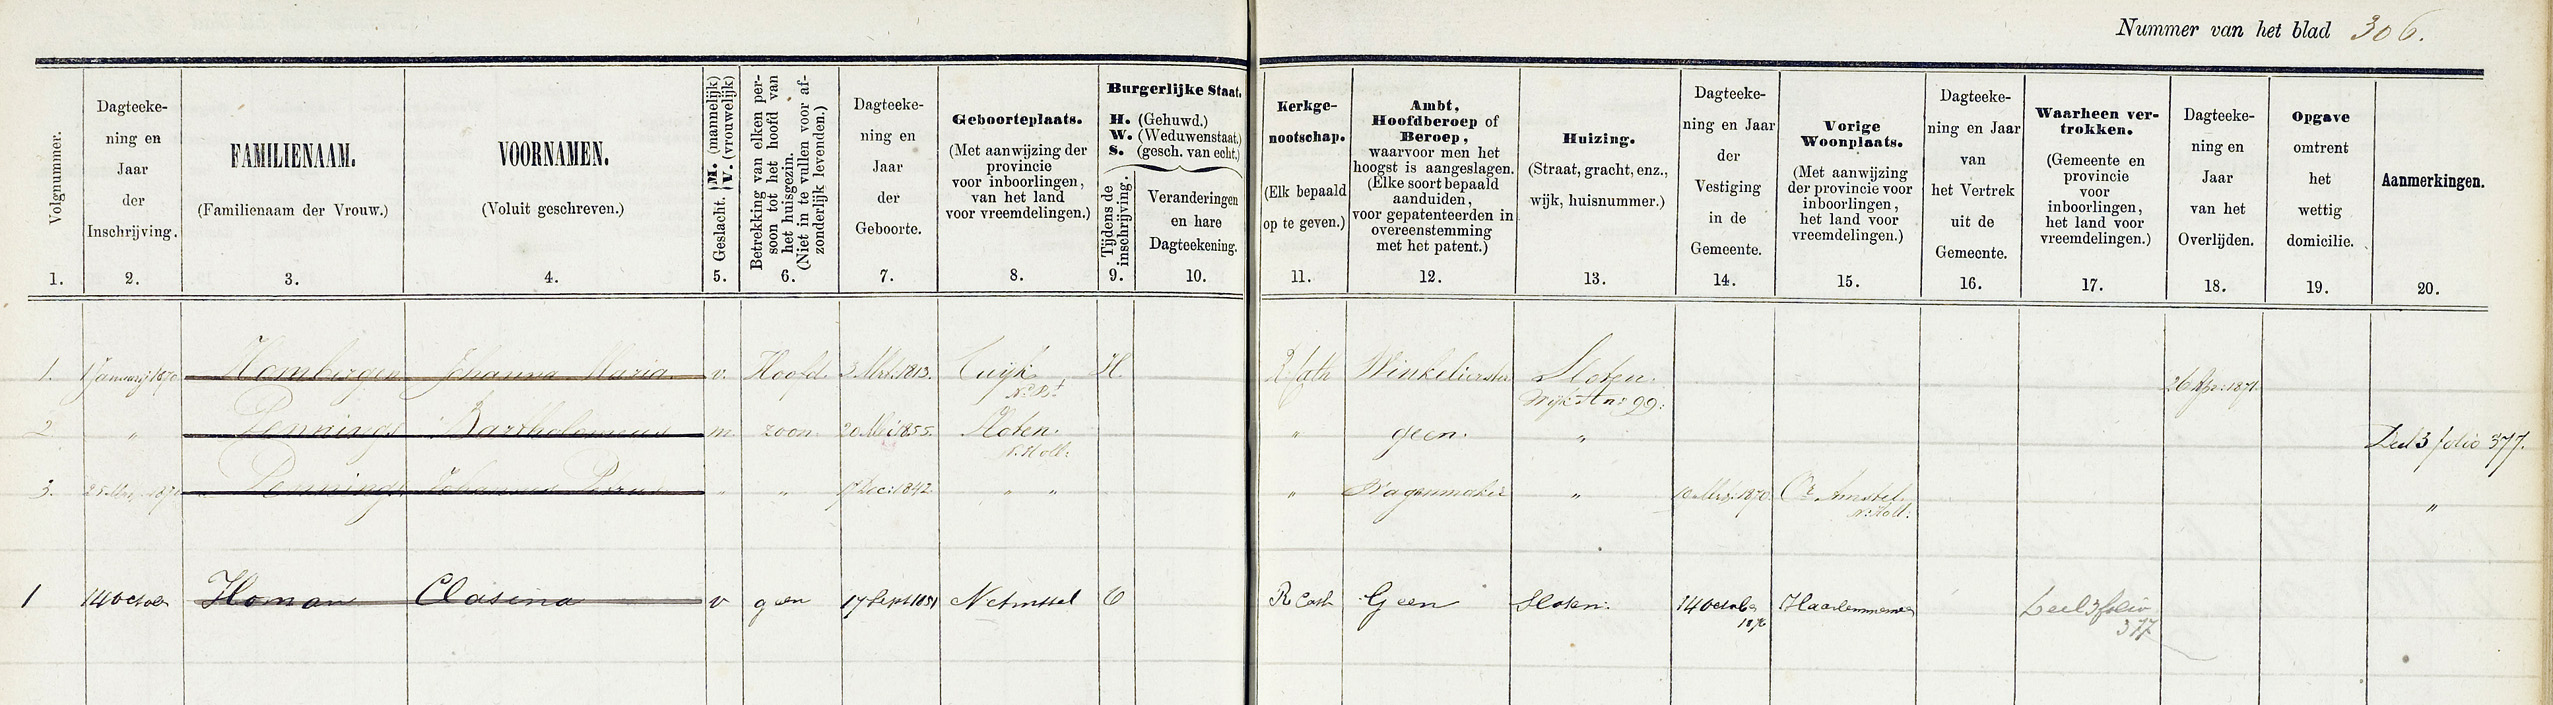 Nummer van het blad 306.
Volgnummer.
1.
Dagteeke-
ning en
Jaar
der
Inschrijving.
2.
FAMILIENAAM.
(Familienaam der Vrouw.)
3.
VOORNAMEN.
(Voluit geschreven.)
4.
Geslacht. M. (mannelijk) V. (vrouwelijk)
5.
Betrekking van elken per-
soon tot het hoofd van
het huisgezin.
(Niet in te vullen voor af-
zonderlijk levenden.)
6.
Dagteeke-
ning en
Jaar
der
Geboorte.
7.
Geboorteplaats.
(Met aanwijzing der
provincie
voor inboorlingen,
van het land
voor vreemdelingen.)
8.
Burgerlijke Staat.
H. (Gehuwd.)
W. (Weduwenstaat.)
S. (gesch. van echt.)
Tijdens de
inschrijving.
9.
Veranderingen
en hare
Dagteekening.
10.
Kerkge-
nootschap.
(Elk bepaald
op te geven.)
11.
Ambt,
Hoofdberoep of
Beroep,
waarvoor men het
hoogst is aangeslagen.
(Elke soort bepaald
aanduiden,
voor gepatenteerden in
overeenstemming
met het patent.)
12.
Huizing.
(Straat, gracht, enz.,
wijk, huisnummer.)
13.
Dagteeke-
ning en Jaar
der
Vestiging
in de
Gemeente.
14.
Vorige
Woonplaats.
(Met aanwijzing
der provincie voor
inboorlingen,
het land voor
vreemdelingen.)
15.
Dagteeke-
ning en Jaar
van
het Vertrek
uit de
Gemeente.
16.
Waarheen ver-
trokken.
(Gemeente en
provincie
voor
inboorlingen,
het land voor
vreemdelingen.)
17.
Dagteeke-
ning en
Jaar
van het
Overlijden.
18.
Opgave
omtrent
het
wettig
domicilie.
19.
Aanmerkingen.
20.
1. 1 Januarij 1870 Hombergen Johanna Maria v. Hoofd 3 Mrt. 1813. Cuijk H. R. Cath Winkelierster Sloten. 26 Apr: 1871.
N. Bt Wijk A no: 99:
2 " Pennings Bartholomeus m. zoon. 20 Mei 1855. Sloten. " geen. " Deel 3 folio 377.
N. Holl:
3. 25 Mrt. 1870 Pennings Johannes " " 17 Dec: 1842. " " " Wagenmaker " 10 Mrt. 1870. Or. Amstel "
N. Holl:
1 14 October Homan Clasina v geen 17 Sept 1851 N Amstel O R Cath Geen Sloten. 14 October Haarlemmermeer Deel 3 folio
1870 377